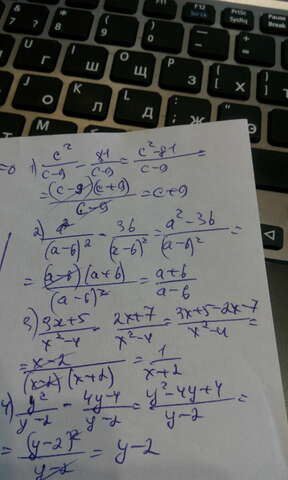 F11
F12
PrtSc
SysRq
Pause
Break
7
8
9
0
Г
Ш
Щ
З
О
Л
Д
Ж
=0 1) c²/(c-9) - 81/(c-9) = (c²-81)/(c-9) =
= (c-9)(c+9)/(c-9) = c+9
2) a²/(a-6)² - 36/(a-6)² = (a²-36)/(a-6)² =
= (a-6)(a+6)/(a-6)² = (a+6)/(a-6)
3) (3x+5)/(x²-4) - (2x+7)/(x²-4) = (3x+5-2x-7)/(x²-4) =
= (x-2)/((x-2)(x+2)) = 1/(x+2)
4) y²/(y-2) - (4y-4)/(y-2) = (y²-4y+4)/(y-2) =
= (y-2)²/(y-2) = y-2